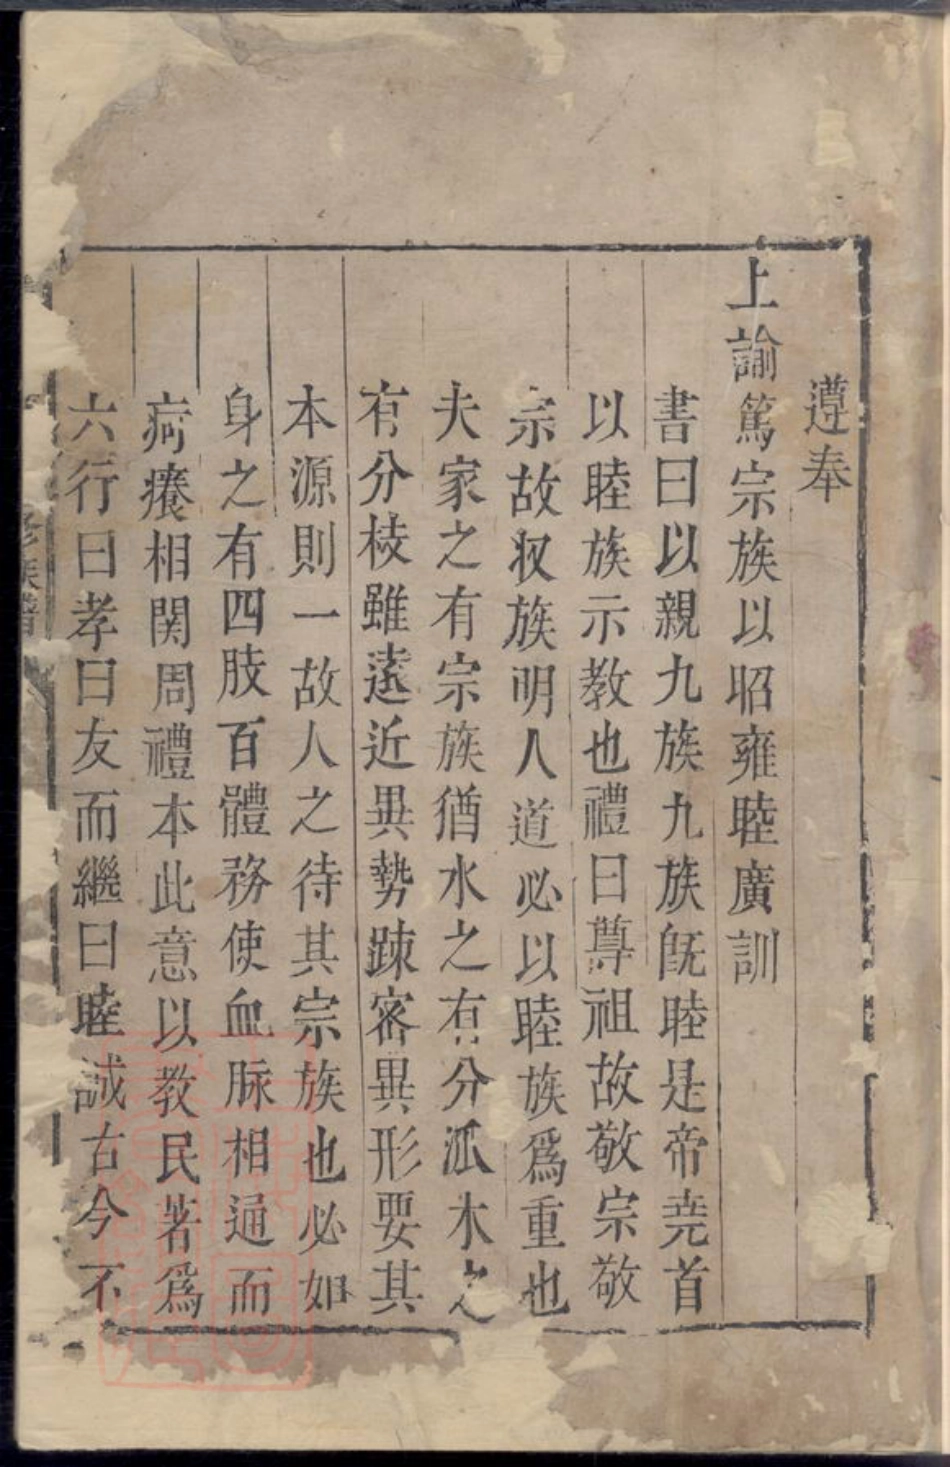 遵奉
上諭篤宗族以昭雍睦廣訓
書曰以親九族九族旣睦是帝堯首
以睦族示教也禮曰尊祖故敬宗敬
宗故収族明人道必以睦族爲重也
夫家之有宗族猶水之有分派木之
有分枝雖遠近異勢踈宻異形要其
本源則一故人之待其宗族也必如
身之有四肢百體務使血脉相通而
疴癢相関周禮本此意以教民著爲
六行曰孝曰友而繼曰睦誠古今不
族譜